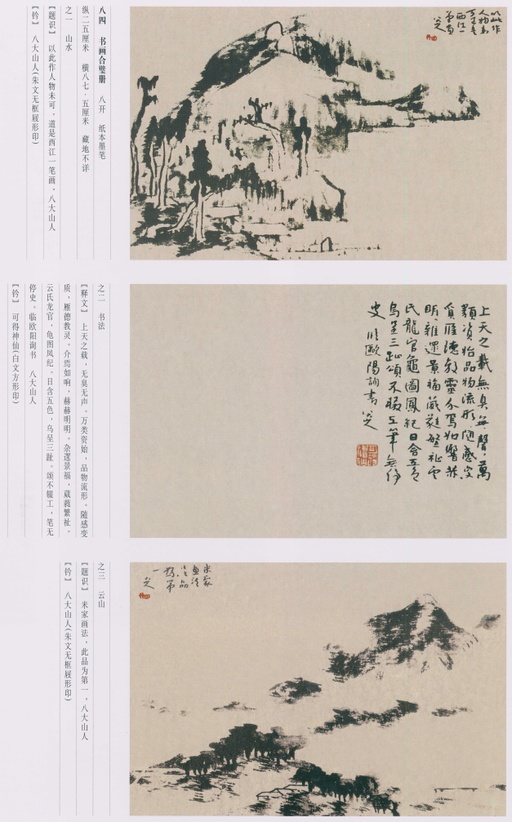 以此作
人物未
可道是
西江一
筆畫
八大山人
八四 书画合璧册 八开 纸本墨笔
纵二五厘米 横八七·五厘米 藏地不详
之一 山水
【题识】 以此作人物未可,道是西江一笔画。八大山人
【钤】 八大山人(朱文无框屐形印)
上天之載無臭無聲萬
類資始品物流形随感变
質雁德教靈介焉如響赫赫
明明雜遝景福葳蕤繁祉雲
氏龍官龜圖鳳紀日含五色
烏呈三趾頌不輟工筆無停
史 临歐陽詢書 八大山人
之二 书法
【释文】 上天之载,无臭无声,万类资始,品物流形,随感变
质,雁德教灵,介焉如响,赫赫明明,杂遝景福,葳蕤繁祉,
云氏龙官,龟图凤纪,日含五色,乌呈三趾,颂不辍工,笔无
停史。临欧阳询书 八大山人
【钤】 可得神仙(白文方形印)
米家
畫法
此品
為第
一
八大山人
之三 云山
【题识】 米家画法,此品为第一。八大山人
【钤】 八大山人(朱文无框屐形印)